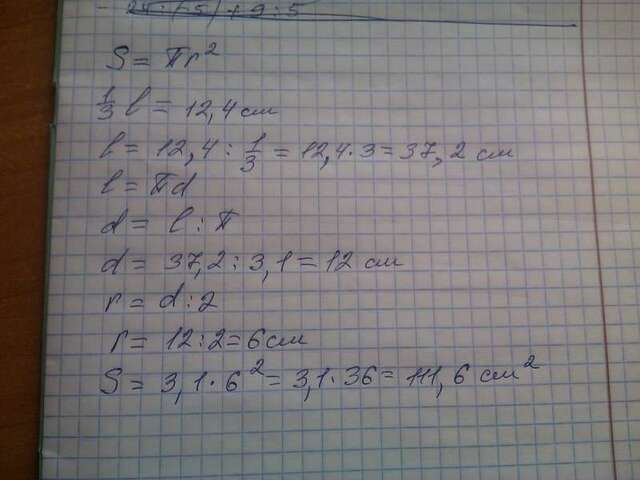 S = πr²
1/3 l = 12,4 см
l = 12,4 : 1/3 = 12,4 · 3 = 37,2 см
l = πd
d = l : π
d = 37,2 : 3,1 = 12 см
r = d : 2
r = 12 : 2 = 6 см
S = 3,1 · 6² = 3,1 · 36 = 111,6 см²